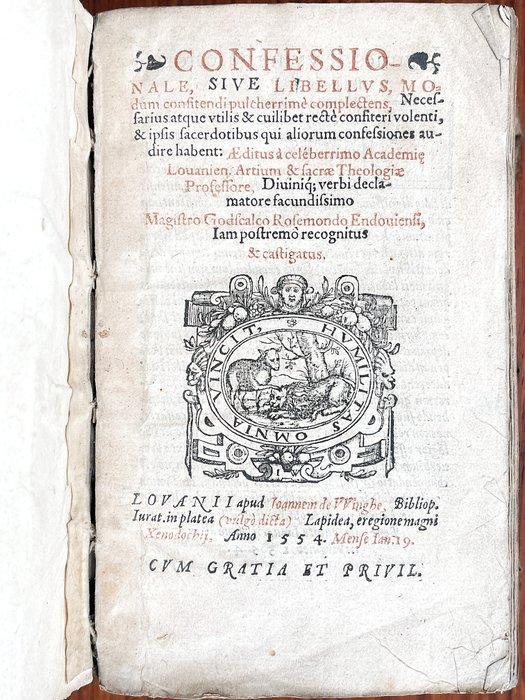 CONFESSIO-
NALE, SIVE LIBELLVS, MO-
dum confitendi pulcherrimè complectens, Neces-
sarius atque vtilis & cuilibet rectè confiteri volenti,
& ipsis sacerdotibus qui aliorum confessiones au-
dire habent: Æditus à celéberrimo Academię
Louanien. Artium & sacræ Theologiæ
Professore, Diuiniq; verbi decla-
matore facundissimo
Magistro Godscalco Rosemondo Endouiensi,
Iam postremò recognitus
& castigatus.
HVMILITAS OMNIA VINCIT.
I W
LOVANII apud Ioannem de VVinghe, Bibliop.
Iurat. in platea (vulgò dicta) Lapidea, e regione magni
Xenodochij. Anno 1554. Mense Ian. 19.
CVM GRATIA ET PRIVIL.